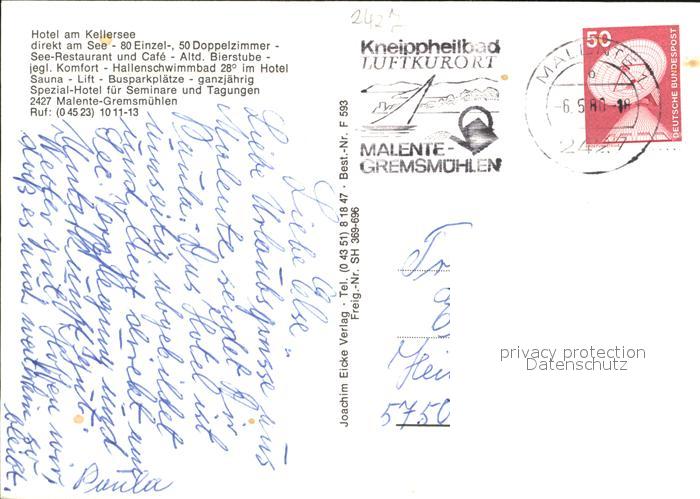 Hotel am Kellersee
direkt am See - 80 Einzel-, 50 Doppelzimmer -
See-Restaurant und Café - Altd. Bierstube -
jegl. Komfort - Hallenschwimmbad 28° im Hotel
Sauna - Lift - Busparkplätze - ganzjährig
Spezial-Hotel für Seminare und Tagungen
2427 Malente-Gremsmühlen
Ruf: (0 45 23) 10 11-13
Liebe Else
Liebe Urlaubsgrüsse aus
Malente sendet Dir
Paula. Das Hotel ist
umseitig abgebildet
und liegt direkt am
See. Verpflegung und
Unterkunft sehr gut.
Wetter gut. Hoffen wir
daß es uns weiterhin so
bleibt.
Paula
Joachim Eicke Verlag · Tel. (0 43 51) 8 18 47 · Best.-Nr. F 593
Freig.-Nr. SH 369-696
2427
Kneippheilbad
LUFTKURORT
MALENTE-
GREMSMÜHLEN
MALENTE 1
-6.5.80-18
2427
50
DEUTSCHE BUNDESPOST
5750
privacy protection
Datenschutz